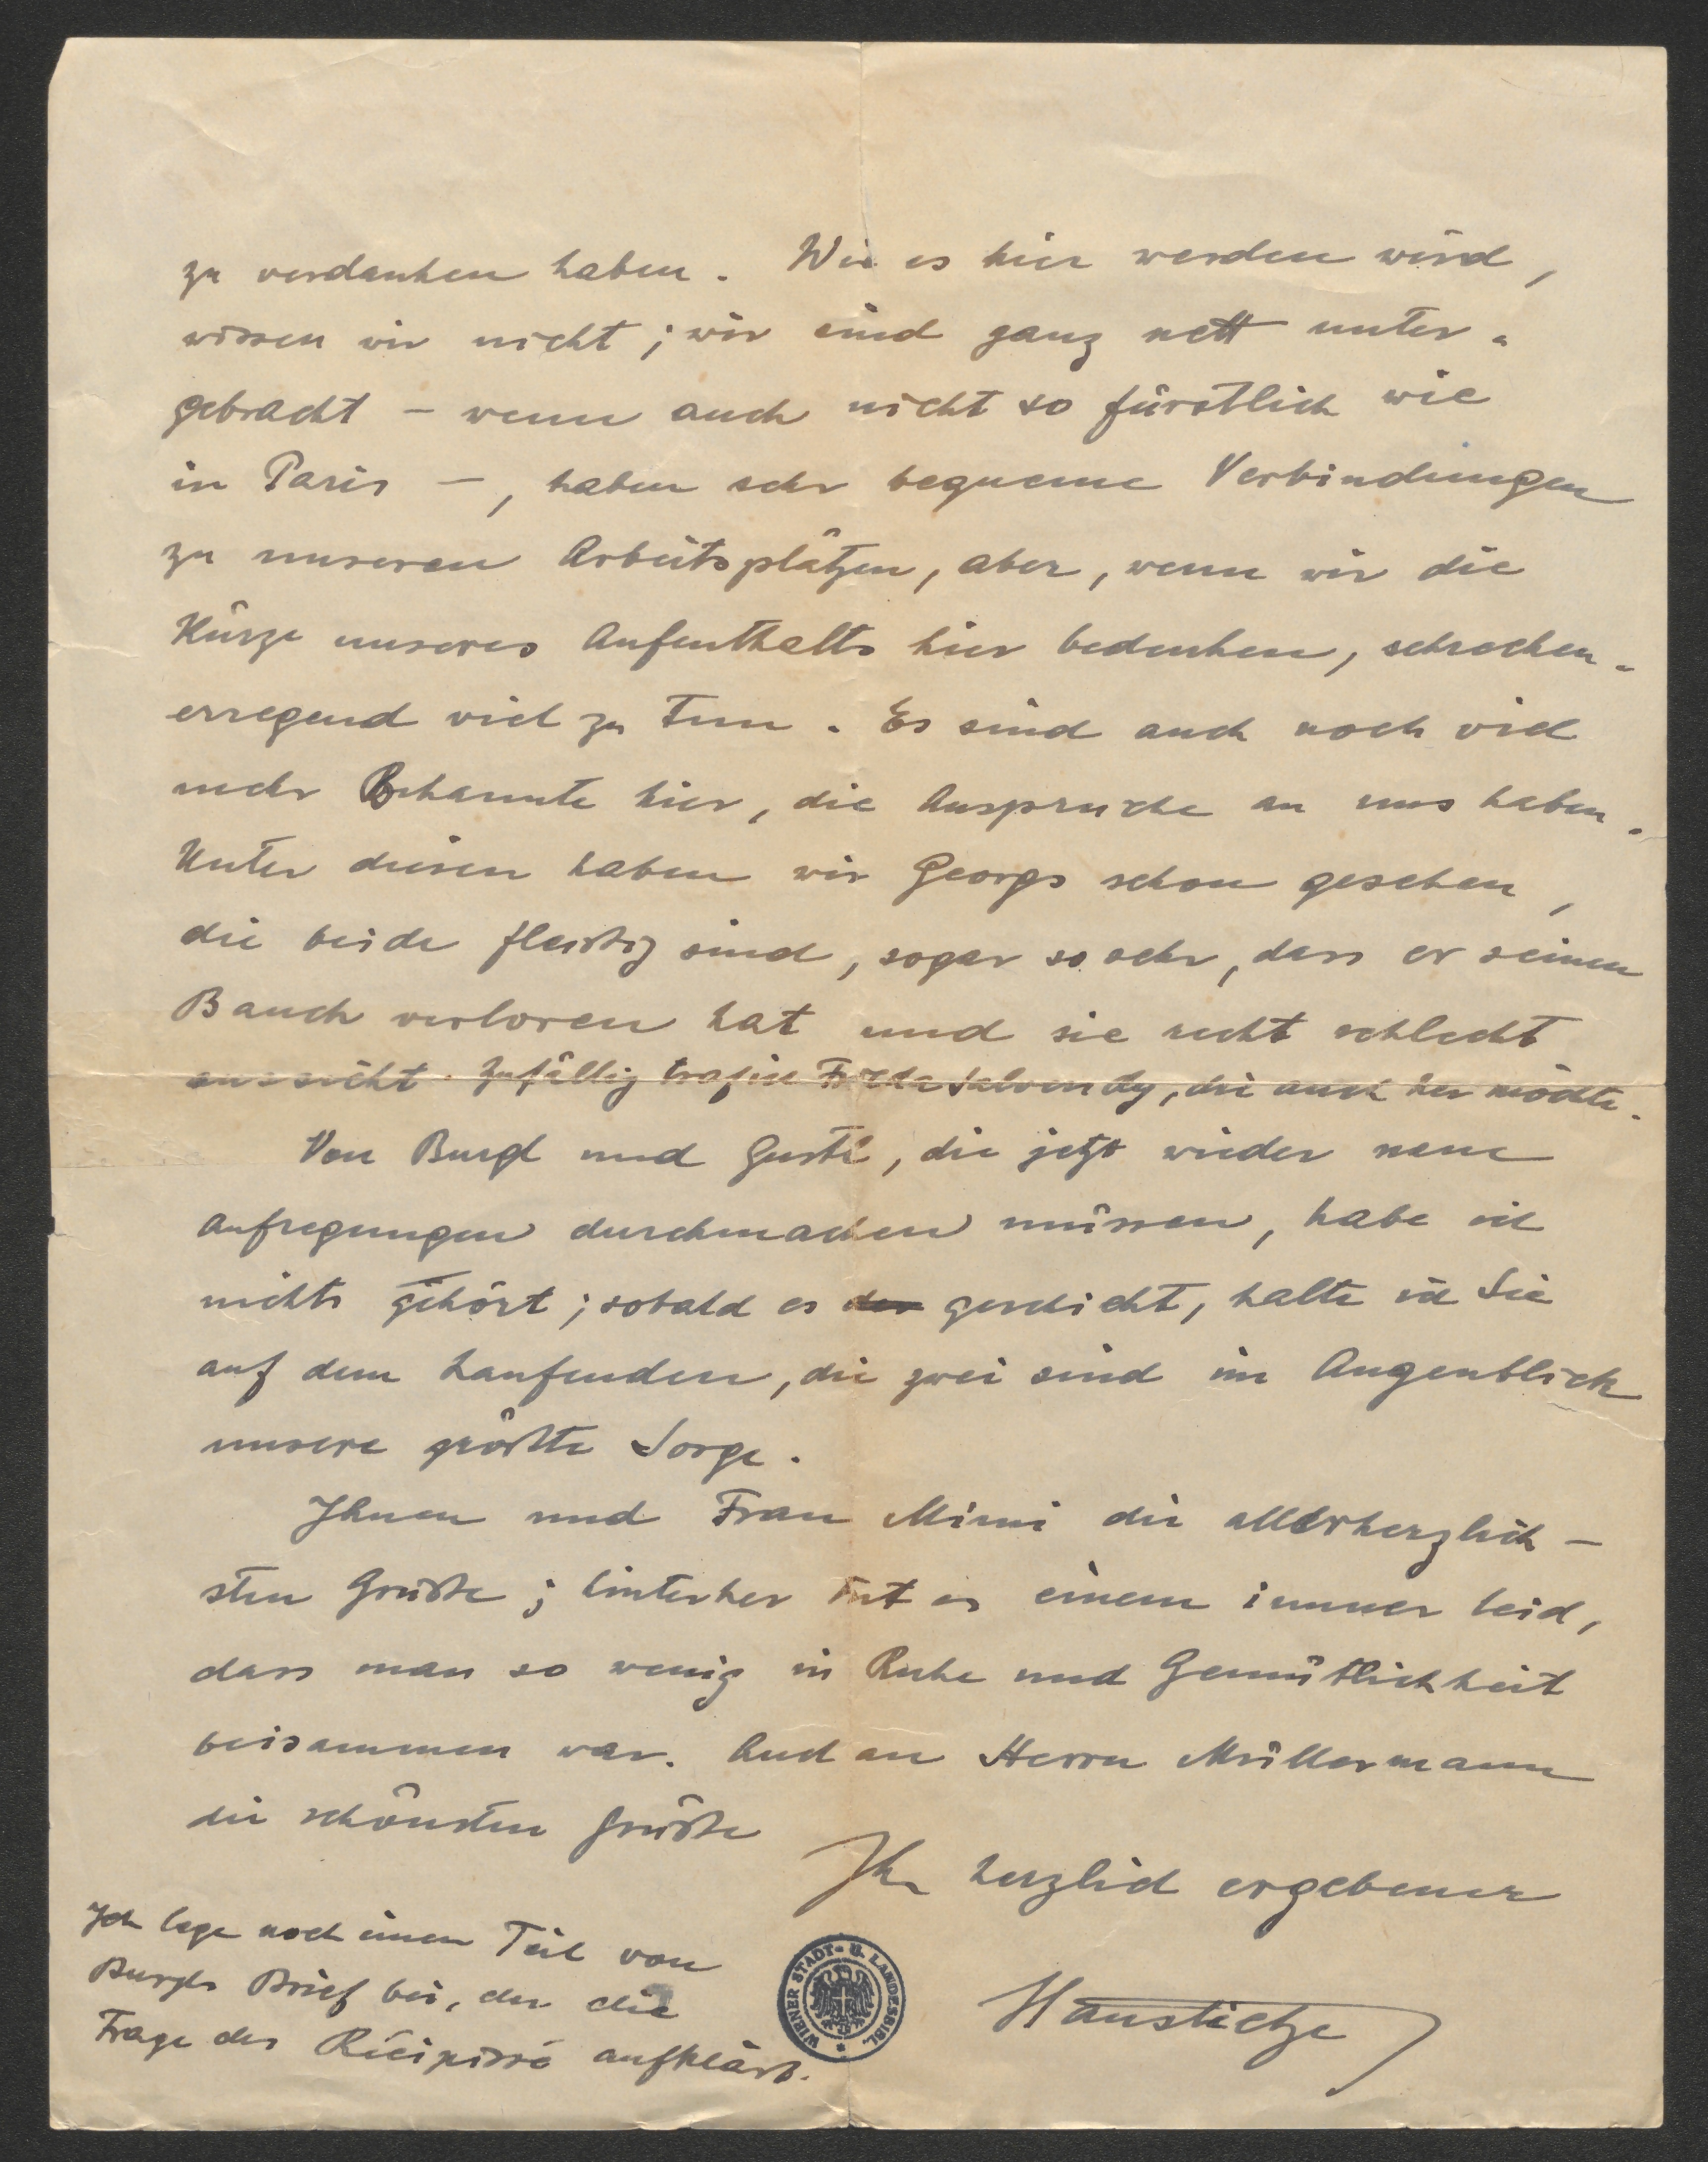 zu verdanken haben. Wie es hier werden wird,
wissen wir nicht; wir sind ganz nett unter-
gebracht – wenn auch nicht so fürstlich wie
in Paris –, haben sehr bequeme Verbindungen
zu unseren Arbeitsplätzen, aber, wenn wir die
Kürze unseres Aufenthalts hier bedenken, schrecken-
erregend viel zu tun. Es sind auch noch viel
mehr Bekannte hier, die Ansprüche an uns haben.
Unter diesen haben wir Georgs schon gesehen,
die beide fleissig sind, sogar so sehr, dass er seinen
Bauch verloren hat und sie recht schlecht
aussieht. Zufällig traf ich Salvendy, die auch her möchte.
Von Burgl und Gustl, die jetzt wieder neue
Aufregungen durchmachen müssen, habe ich
nichts gehört; sobald es geschieht, halte ich Sie
auf dem Laufenden, die zwei sind im Augenblick
unsere größte Sorge.
Ihnen und Frau Mimi die allerherzlich-
sten Grüße; hinterher tut es einem immer leid,
dass man so wenig in Ruhe und Gemütlichkeit
beisammen war. Auch an Herrn Müllermann
die schönsten Grüße
Ihr herzlich ergebener
Ich lege noch einen Teil von
Burgls Brief bei, der die
Frage des Récipissé aufklärt.
WIENER STADT- U. LANDESBIBL.